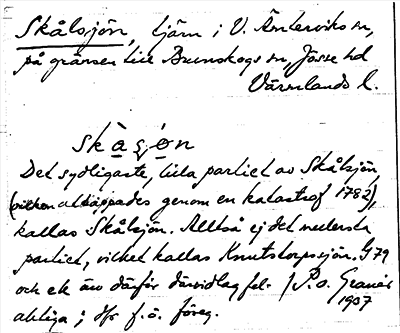 Skålsjön, tjärn i V. Ämterviks sn,
på gränsen till Brunskogs sn, Jösse hd
Värmlands l.
skàʂón
Det sydligaste, lilla partiet av Skålsjön,
(vilken attappades genom en katastrof 1782),
kallas Skålsjön. Alltså ej det nedersta
partiet, vilket kallas Knutstorpssjön. G 79
och ek är därför
P. o. Granér
1907
f.ö. föreg.